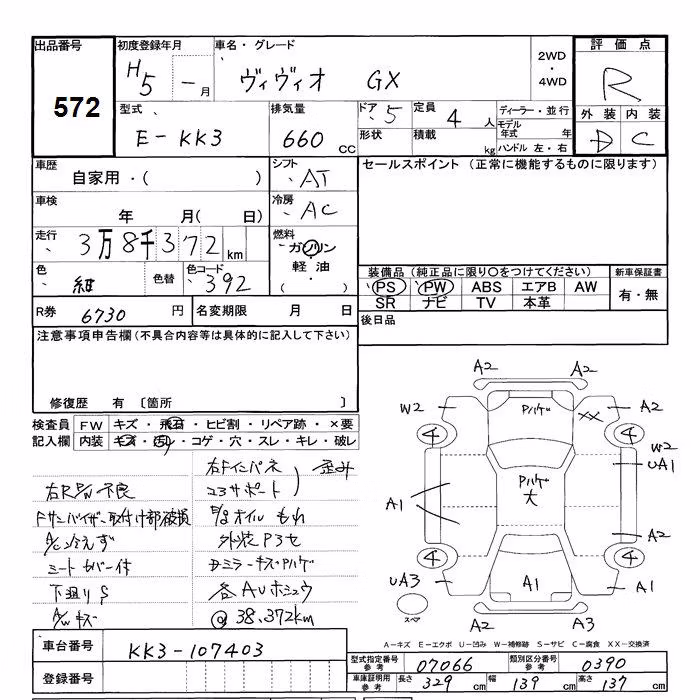 出品番号 初度登録年月 車名・グレード 2WD・4WD 評価点
572 H5 年 - 月 ヴィヴィオ GX R
型式 排気量 ドア 定員 ディーラー・並行 外装 内装
E-KK3 660 CC 5 4 人 モデル年式 年 D C
形状 積載 kg ハンドル 左・右
車歴 シフト セールスポイント (正常に機能するものに限ります)
自家用・( ) AT
車検 冷房
年 月( 日) AC
走行 燃料
3万8千372 km ガソリン
軽油
( ・ )
色 紺 色替 色コード 392
装備品(純正品に限り○をつけてください) 新車保証書
PS PW ABS エアB AW 有・無
SR ナビ TV 本革
R券 6730 円 名変期限 月 日
後日品
注意事項申告欄(不具合内容等は具体的に記入して下さい)
修復歴 有 〔箇所 〕
検査員記入欄 FW キズ・飛石・ヒビ割・リペア跡・×要
内装 キズ・汚レ・コゲ・穴・スレ・キレ・破レ
右Fインパネ 歪み
右R P/W不良 コアサポート
Fサンバイザー取付け部破損 P/S オイルもれ
A/C冷えず 外装P3セ
シートカバー付
下廻りS 各AUホシュウ
A/Wキズ @ 38,372km
車台番号 KK3-107403
登録番号
A2
W2 Pハゲ XX A2
4 4
W2
UA1
A1 Pハゲ大
A2
4 4
UA3 A1 A1
スペア A2 A3
A-キズ E-エクボ U-凹み W-補修跡 S-サビ C-腐食 XX-交換済
型式指定番号 参考 07066 類別区分番号 参考 0390
車庫証明用 参考 長さ 329 cm 幅 139 cm 高さ 137 cm